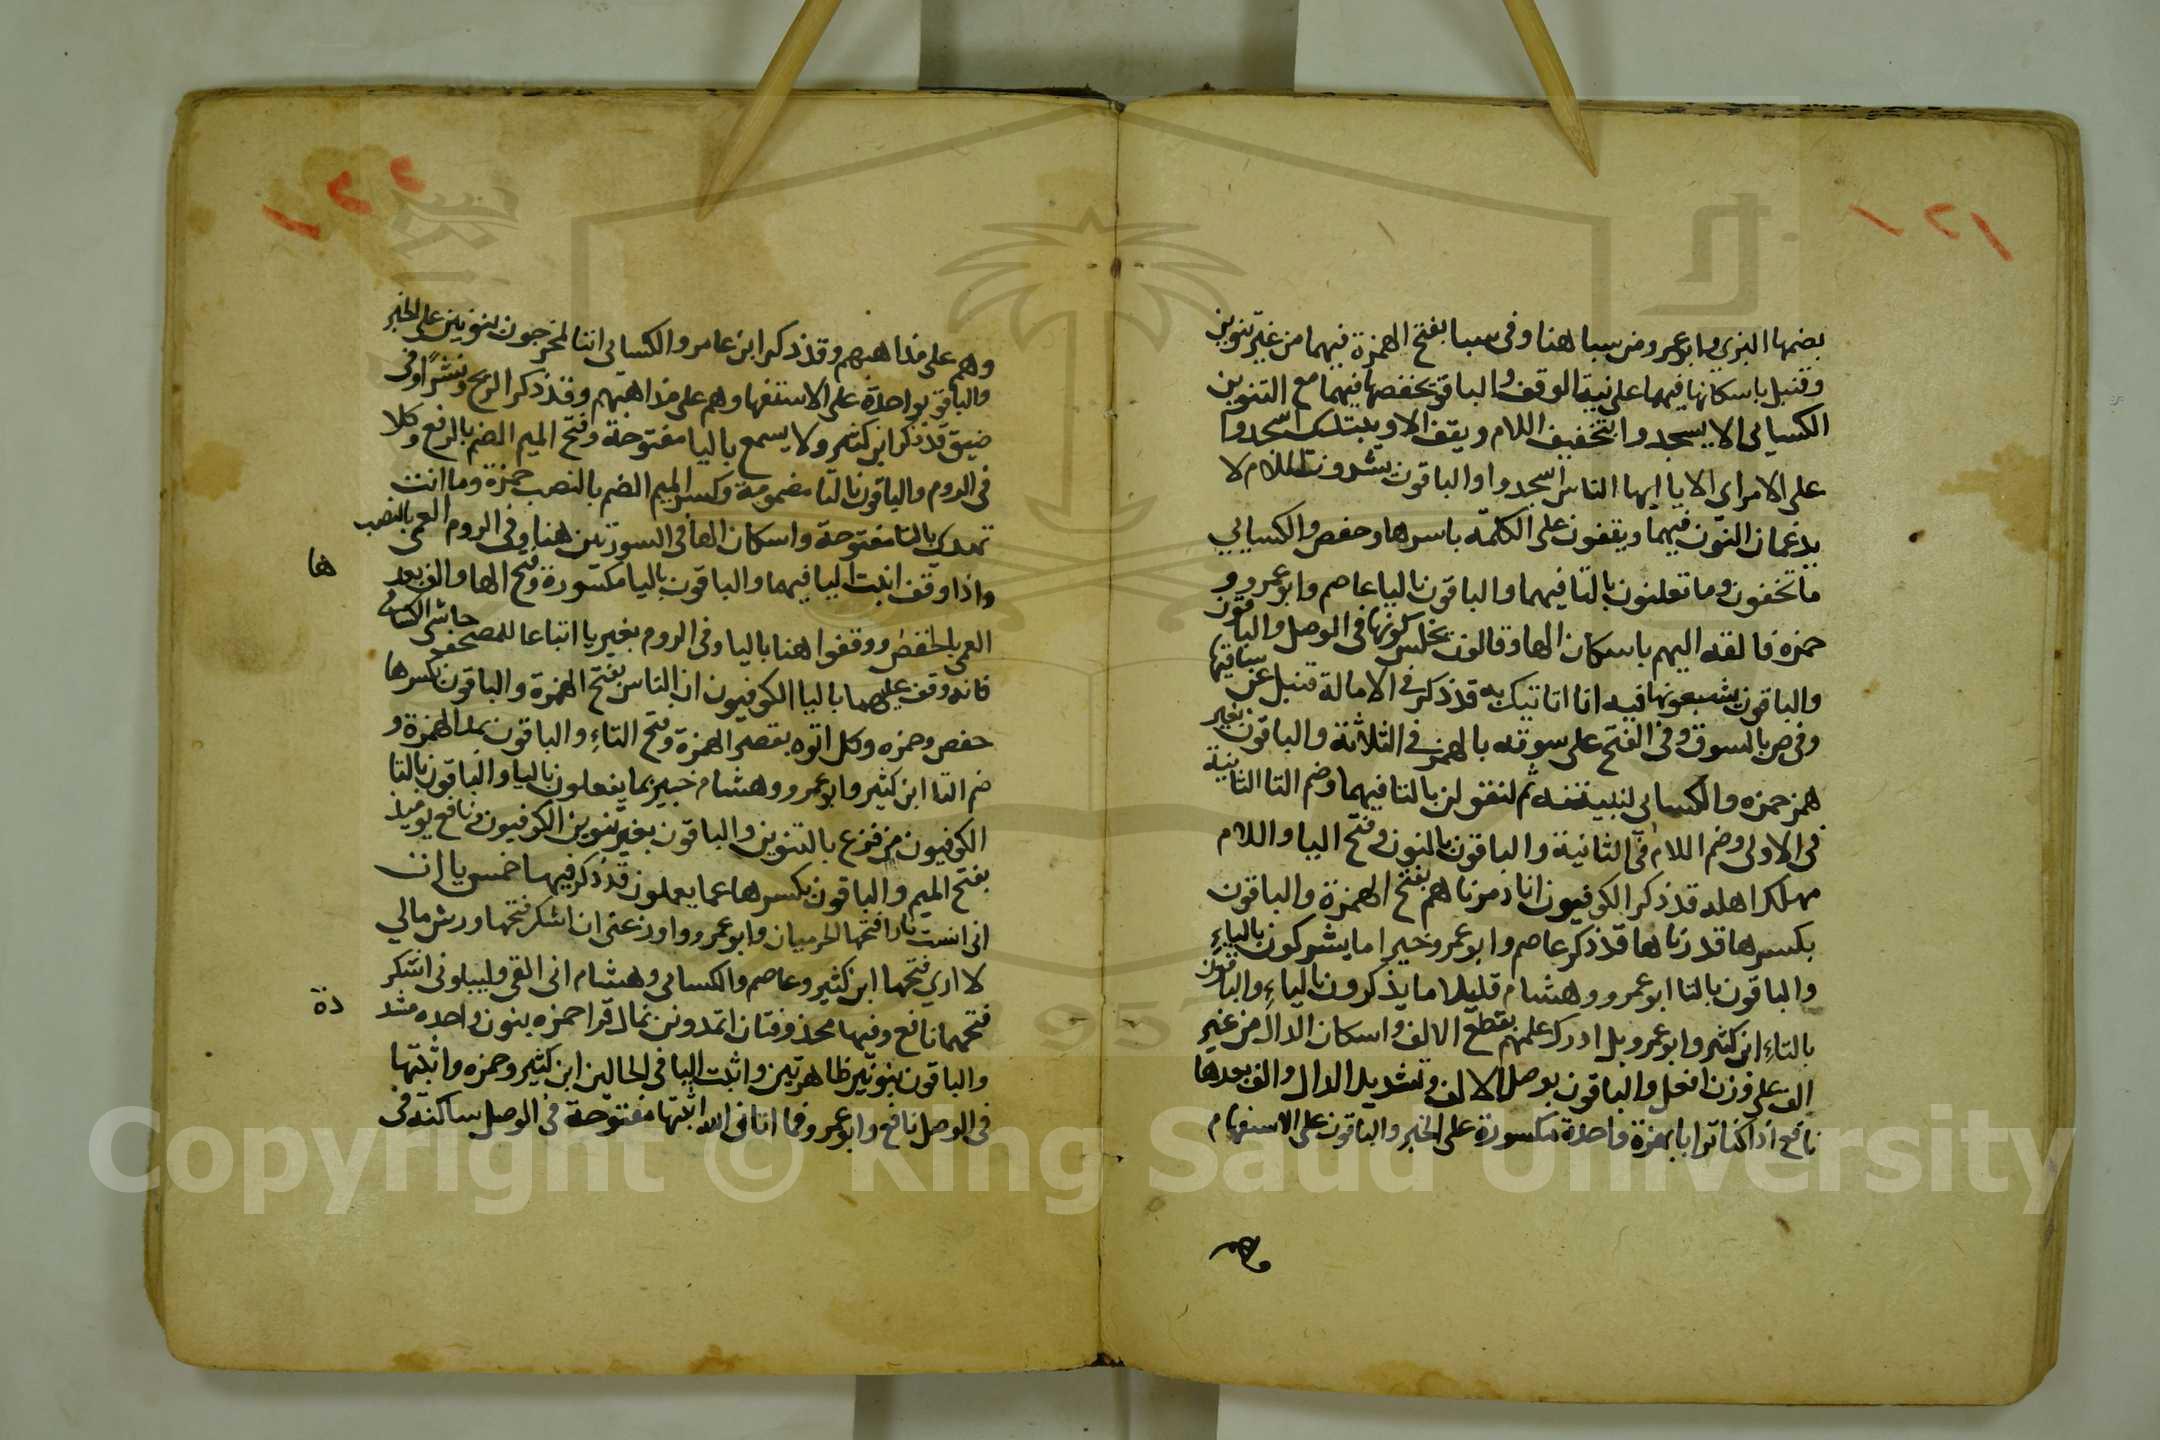 ١٢١
بضمها البزي وابو عمرو من سبا هنا وفى سبا بفتح الهمزة فيهما من غير تنوين
وقنبل باسكانها فيهما على نية الوقف والباقون بخفضها فيهما مع التنوين
الكسائى الا يسجدوا بتخفيف اللام ويقف الا ويبتدى اسجدوا
على الامر اى الا يا ايها الناس اسجدوا والباقون يشددون اللام لا
يدغمان النون فيهما ويقفون على الكلمة باسرها وحفص والكسايي
ما تخفون وما تعلنون بالتا فيهما والباقون باليا عاصم وابو عمرو و
حمزه فالقه اليهم باسكان الها وقالون يختلس كسرتها فى الوصل والباقون
والباقون يشبعونها فيه انا اتاتيك به قد ذكر فى الامالة قنبل عن ساقيها
وفى ص بالسوق وفى الفتح على سوقه بالهمز فى الثلاثة والباقون بغير
همز حمزه والكسائى لنبيتنه ثم لنقولن بالتا فيهما وضم التا الثانية
فى الاولى وضم اللام فى الثانية والباقون بالنون وفتح اليا واللام
مهلك اهله قد ذكر الكوفيون انا دمرناهم بفتح الهمزة والباقون
بكسرها قدرناها قد ذكر عاصم وابو عمرو خير اما يشركون بالياء
والباقون بالتا ابو عمرو وهشام قليلا ما يذكرون بالياء والباقون
بالتاء ابن كثير وابو عمرو بل ادرك علمهم بقطع الالف واسكان الدال من غير
الف على وزن افعل والباقون بوصل الالف وتشديد الدال والف بعدها
نافع اذا كنا ترابا بهمزة واحدة مكسورة على الخبر والباقون على الاستفهام
وهم
١٢٢
وهم على مذاهبهم وقد ذكر ابن عامر والكسائى اننا لمخرجون بنونين على الخبر
والباقون بواحدة على الاستفهام وهم على مذاهبهم وقد ذكر الريح ونشرا وفى
ضيق قد ذكر ابن كثير ولا يسمع باليا مفتوحة وفتح الميم الصم بالرفع وكلا
فى الروم والباقون بالتا مضمومة وكسر الميم الصم بالنصب حمزة وما انت
تهدى بالتا مفتوحة واسكان الها فى السورتين هنا وفى الروم العمى بالنصب
واذا وقف اثبت اليا فيهما والباقون باليا مكسورة وفتح الها والف بعد
ها
العمى بالخفض ووقفوا هنا باليا وفى الروم بغير يا اتباعا للمصحف حاشى الكسائى
فانه وقف عليهما باليا الكوفيون ان الناس بفتح الهمزة والباقون بكسرها
حفص وحمزه وكل اتوه بقصر الهمزة وفتح التاء والباقون بمد الهمزة و
ضم التا ابن كثير وابو عمرو وهشام خبير بما يفعلون باليا والباقون بالتا
الكوفيون من فزع بالتنوين والباقون بغير تنوين الكوفيون ونافع يوميذ
بفتح الميم والباقون بكسرها عما يعملون قد ذكر فيها خمس ياات
انى انست نارا فتحها الحرميان وابو عمرو واوزعنى ان اشكر فتحها ورش مالي
لا ارى فتحها ابن كثير وعاصم والكسائى وهشام انى القى وليبلونى اشكر
فتحهما نافع وفيها محذوفتان اتمدونن بمال قرا حمزه بنون واحده مشد
دة
والباقون بنونين ظاهرتين واثبت اليا فى الحالين ابن كثير وحمزه واثبتها
فى الوصل نافع وابو عمرو فما اتانى الله اثبتها مفتوحة فى الوصل ساكنة فى
Copyright © King Saud University
1957